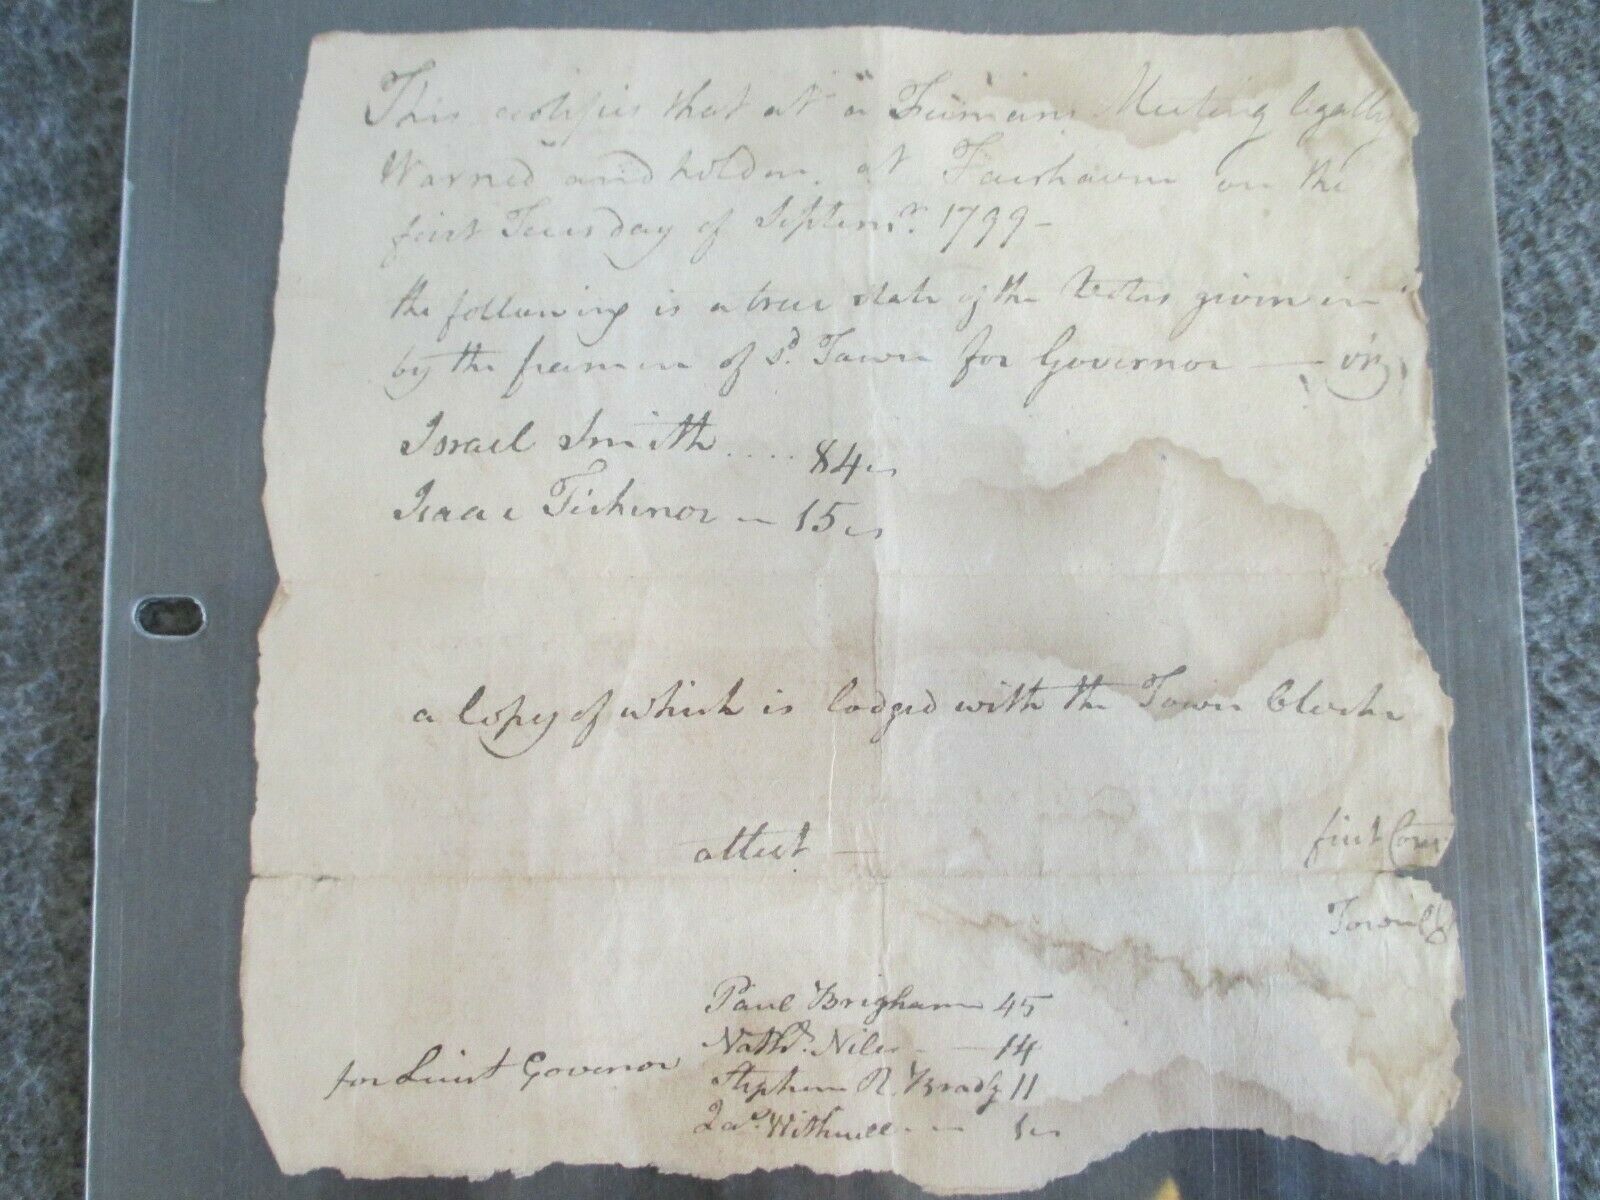 This certifies that at a Freemans Meeting legally
Warned and holden at Fairhaven on the
first Tuesday of Septemr. 1799 –
the following is a true state of the Votes given in
by the freemen of sd. Town for Governor — viz
Israel Smith .... 84
Isaac Tichenor — 15
a Copy of which is lodged with the Town Clerke
attest —
first Cons
Town Cl
Paul Brigham 45
Nathl. Niles — 14
for Lieut Governor
Stephen R. Bradly 11
1